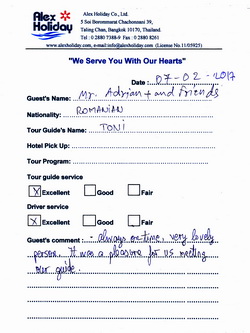 Alex Holiday
Alex Holiday Co., Ltd.
5 Soi Borommarat Chachonnani 39,
Taling Chan, Bangkok 10170, Thailand.
Tel : 0 2880 7388-9 Fax : 0 2880 8261
www.alexholiday.com, e-mail:info@alexholiday.com (License No.11/05925)
"We Serve You With Our Hearts"
Date : 07-02-2017
Guest's Name: Mr. Adrian + and friends
Nationality: ROMANIAN
Tour Guide's Name: TONI
Hotel Pick Up:
Tour Program:
Tour guide service
X Excellent Good Fair
Driver service
X Excellent Good Fair
Guest's comment : - always on time, very lovely
person. It was a pleasure for us meeting
our guide.